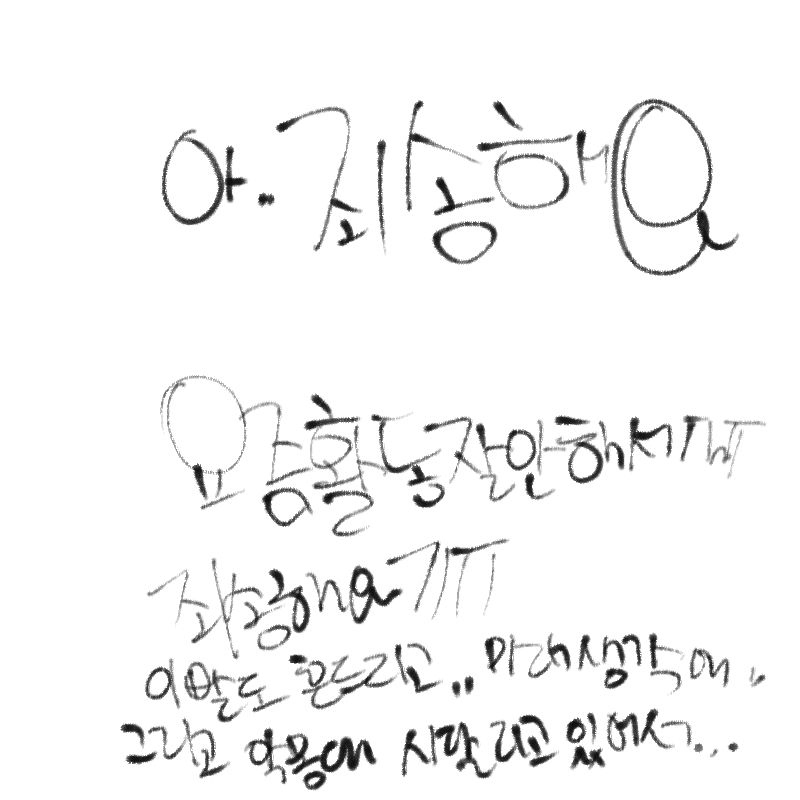 아.. 죄송해요
요즘 활동 잘 안 해서 ㅠㅠ
죄송해요 ㅠㅠ
이빨도 흔드리고.. 미래 생각에..
그리고 악몽에 시달리고 있어서...